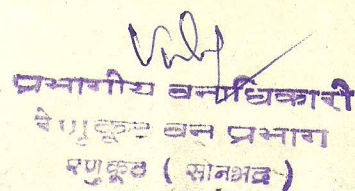 प्रभागीय वनाधिकारी
रेणुकूट वन प्रभाग
रेणुकूट ( सोनभद्र )